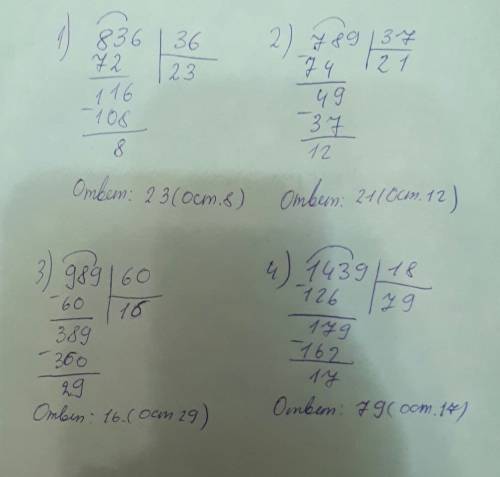 1) 836 | 36
72 | 23
116
-108
8
Ответ: 23(ост.8)
2) 789 | 37
-74 | 21
49
-37
12
Ответ: 21(ост.12)
3) 989 | 60
-60 | 16
389
-360
29
Ответ: 16.(ост 29)
4) 1439 | 18
-126 | 79
179
-162
17
Ответ: 79(ост.17)